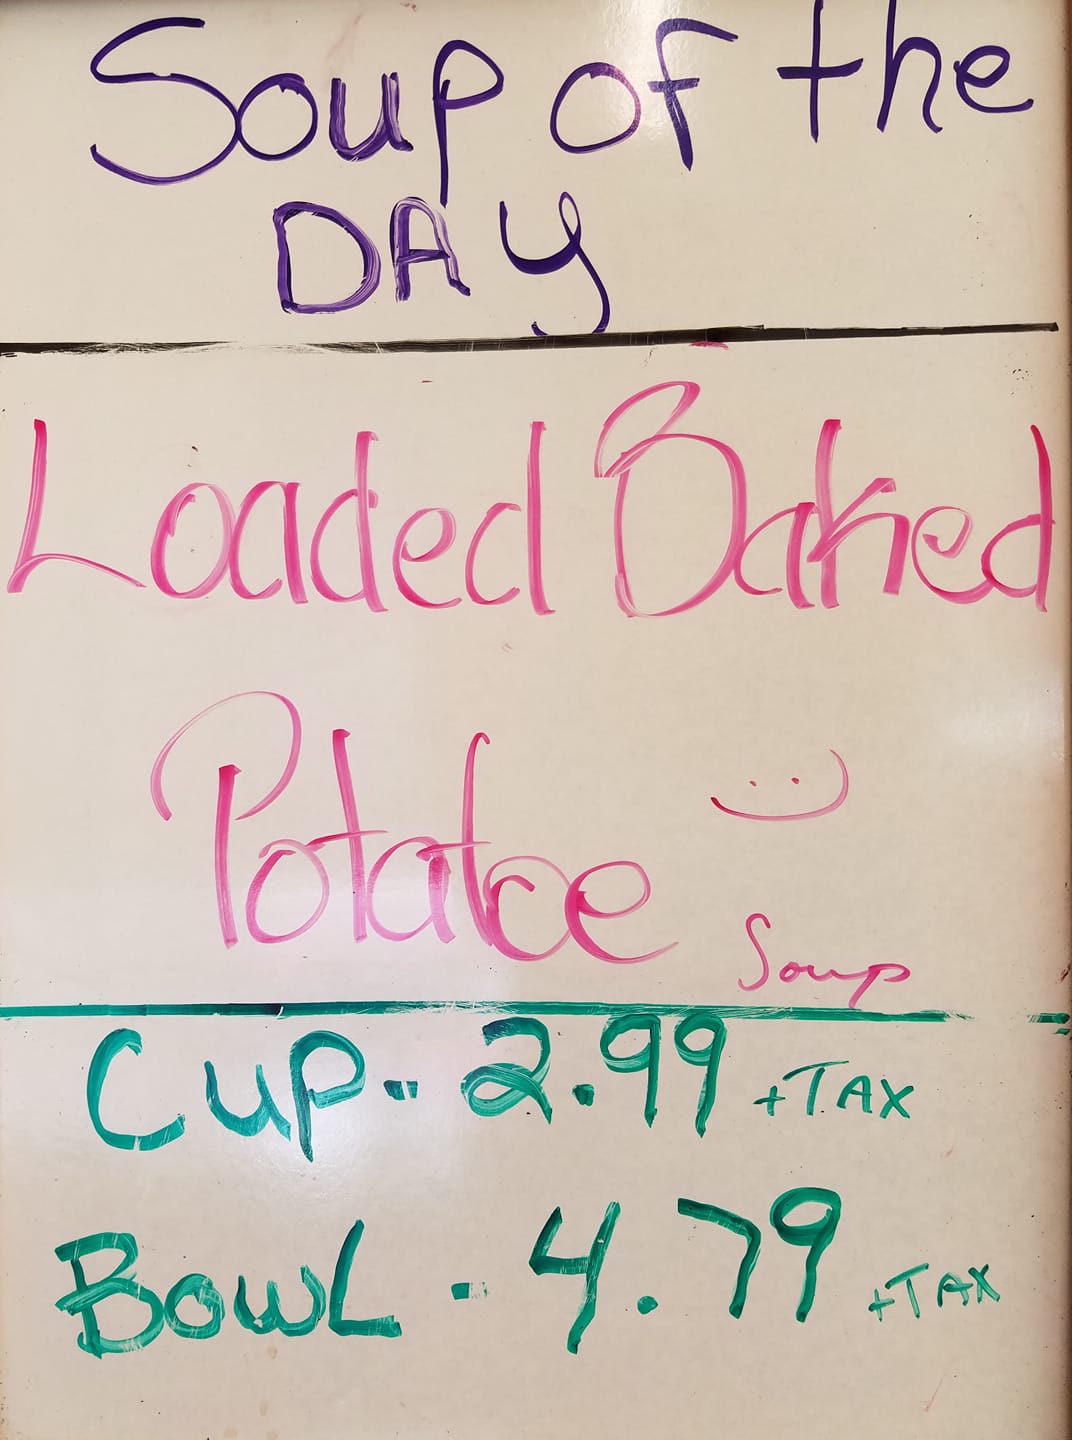 Soup of the
DAY
Loaded Baked
Potatoe :)
Soup
Cup - 2.99 +TAX
Bowl - 4.79 +TAX